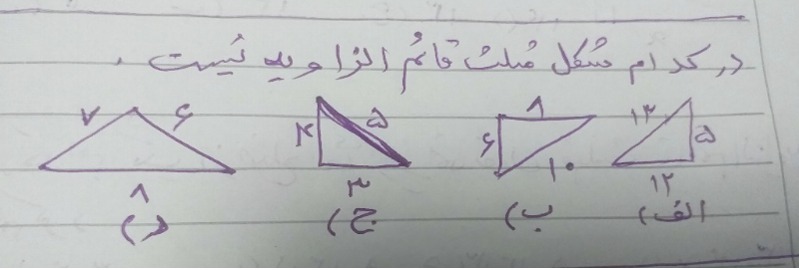 در کدام شکل مثلث قائم الزاویه نیست .
۱۳ ۵ ۱۲
۸ ۶ ۱۰
۴ ۵ ۳
۷ ۶ ۸
الف) ب) ج) د)